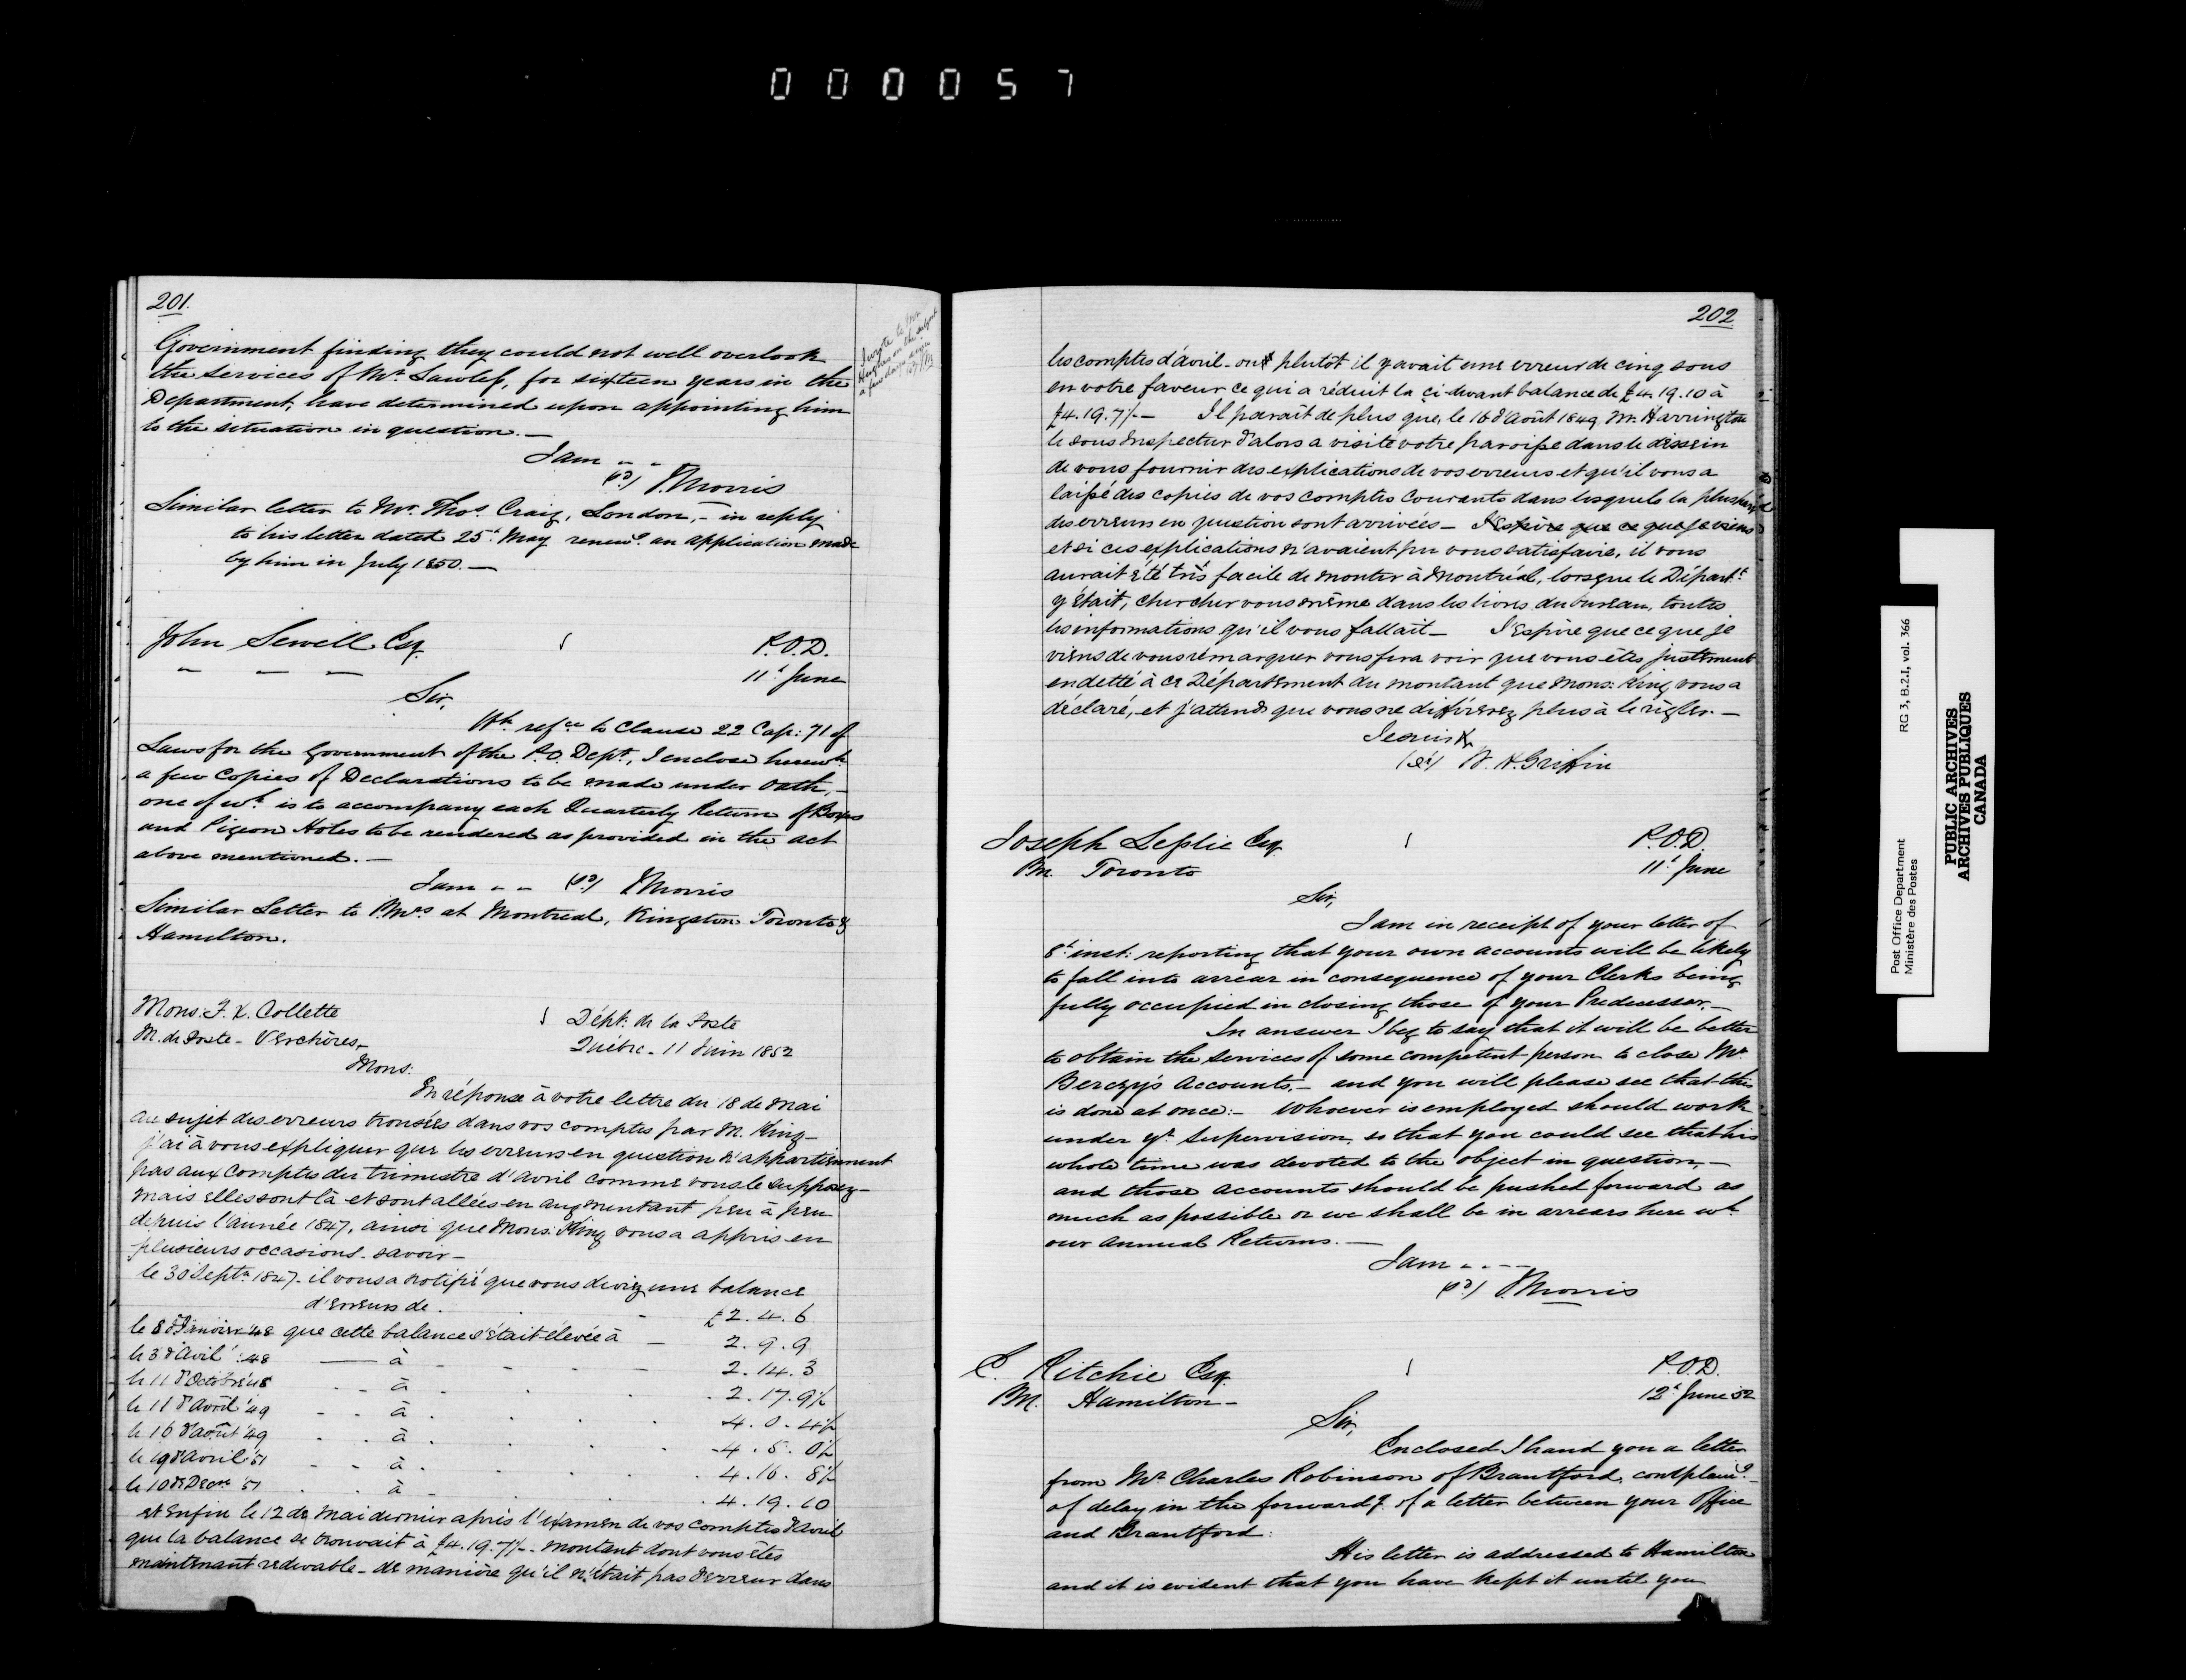 000057
201.
Government finding they could not well overlook
the services of Mr. Lawless, for sixteen years in the
Department, have determined upon appointing him
to the situation in question. —
I am - -
(sd) J. Morris
Similar letter to Mr. Thos. Craig, London, - in reply
to his letter dated 25t. May renewg. an application made
by him in July 1850. —
I wrote to
Hughes on the subject
a few days since
John Sewell Esq.
P.O.D.
11t June
Sir,
Wh refce to Clause 22 Cap: 71 of
Laws for the Government of the P.O. Dept, I enclose herewh
a few Copies of Declarations to be made under Oath, -
one of wh. is to accompany each Quarterly Return of Boxes
and Pigeon Holes to be rendered as provided in the act
above mentioned. —
I am - - (sd) J Morris
Similar Letter to P.Mrs at Montreal, Kingston Toronto &
Hamilton.
Mons: F. X. Collette
M. de Poste - Verchères,
Dépt: de la Poste
Québec - 11 Juin 1852
Mons:
En réponse à votre lettre du 18 de Mai
au sujet des erreurs trouvées dans vos comptes par M. King -
j'ai à vous expliquer que les erreurs en question n'appartiennent
pas aux comptes du trimestre d'Avril comme vous le supposez -
mais elles sont là et sont allées en augmentant peu à peu
depuis l'année 1847, ainsi que Mons. King vous a appris en
plusieurs occasions. savoir -
le 30 Septr. 1847 - il vous a notifié que vous deviez une balance
d'erreurs de . - £2. 4. 6
le 8 d'Janvier '48 que cette balance s'était élevée à — 2. 9. 9
le 3 d'Avil '48 — à - - - - 2. 14. 3
le 11 d'Octobre '48 - - à . . . 2. 17. 9½
le 11 d'Avril '49 - - à . . . 4. 0. 4½
le 16 d'août '49 - - à . . . 4. 5. 0½
le 19 d'Avril '51 - - à . . . 4. 16. 8½
le 10 de Decre '51 . . à . . . 4. 19. 10
et enfin le 12 de Mai dernier après l'examen de vos comptes d'avril
que la balance se trouvait à £4. 19. 7½ - montant dont vous êtes
maintenant redevable - de manière qu'il n'était pas d'erreur dans
202
les comptes d'avril - ou plutôt il y avait une erreur de cinq sous
en votre faveur ce qui a réduit la ci-devant balance de £4. 19. 10 à
£4. 19. 7½ — Il paraît de plus que, le 16 d'Août 1849 Mr. Harrington
le sous Inspecteur d'alors a visité votre paroisse dans le dessein
de vous fournir des explications de vos erreurs et qu'il vous a
laissé des copies de vos comptes courants dans lesquels la plus part
des erreurs en question sont arrivées - J'Espère que ce que je viens
et si ces explications n'avaient pu vous satisfaire, il vous
aurait été très facile de monter à Montréal, lorsque le Départt.
y était, chercher vous même dans les livres du bureau, toutes
les informations qu'il vous fallait - J'Espère que ce que je
viens de vous rémarquer vous fera voir que vous êtes justement
endetté à ce Département du montant que Mons: King vous a
déclaré, et j'attends que vous ne différerez plus à le règler. —
Je suis &c
(sé) W. H. Griffin
Joseph Leslie Esq.
P.M. Toronto
P.O.D.
11t June
Sir,
I am in receipt of your letter of
8t inst: reporting that your own accounts will be likely
to fall into arrear in consequence of your Clerks being
fully occupied in closing those of your Predecessor. -
In answer I beg to say that it will be better
to obtain the services of some competent person to close Mr.
Berczy's Accounts, - and you will please see that this
is done at once: - Whoever is employed should work
under yr. supervision, so that you could see that his
whole time was devoted to the object in question, -
and those accounts should be pushed forward as
much as possible or we shall be in arrears here wh.
our Annual Returns. —
I am - - - -
(sd) J. Morris
E. Ritchie Esq.
P.M. Hamilton -
P.O.D.
12t June '52
Sir,
Enclosed I hand you a letter
from Mr. Charles Robinson of Brantford, complaing. -
of delay in the forwardg. of a letter between your Office
and Brantford:
His letter is addressed to Hamilton
and it is evident that you have kept it until you
Post Office Department
Ministère des Postes
RG 3, B.2.I, vol. 366
PUBLIC ARCHIVES
ARCHIVES PUBLIQUES
CANADA